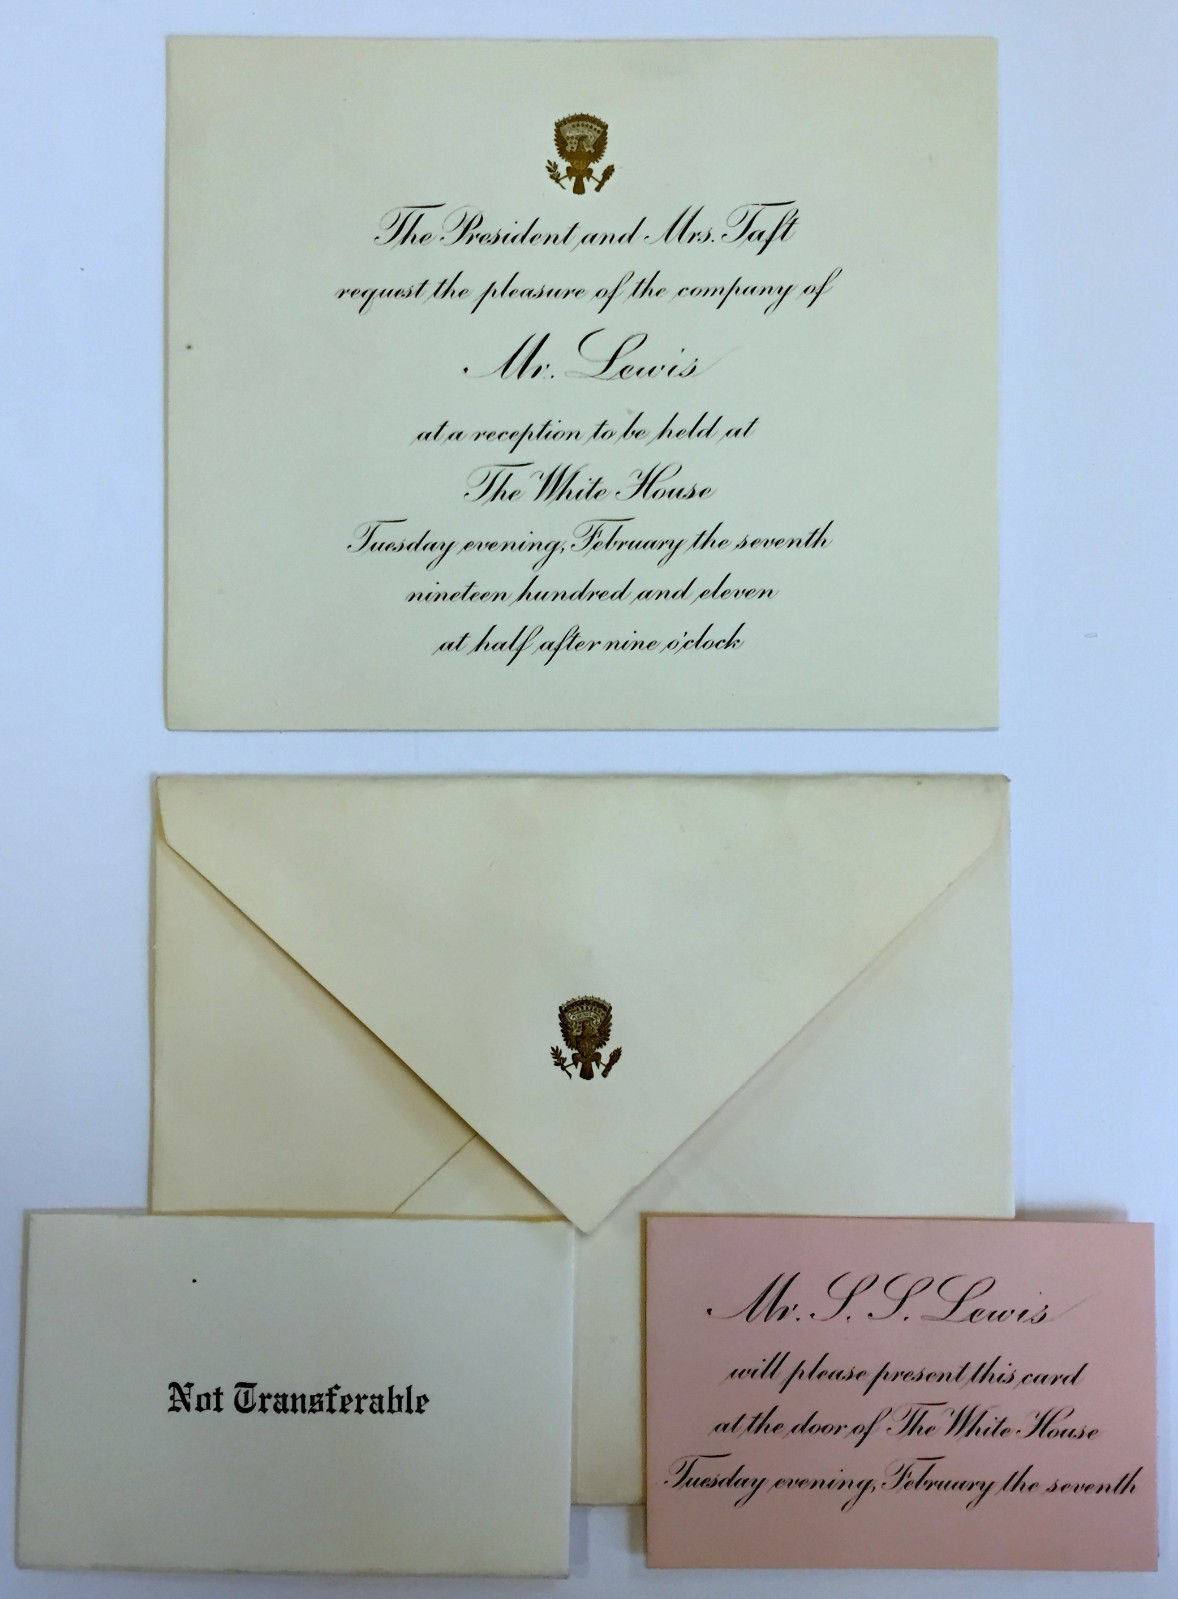 The President and Mrs. Taft
request the pleasure of the company of
Mr. Lewis
at a reception to be held at
The White House
Tuesday evening, February the seventh
nineteen hundred and eleven
at half after nine o'clock
Not Transferable
Mr. S. S. Lewis
will please present this card
at the door of The White House
Tuesday evening, February the seventh